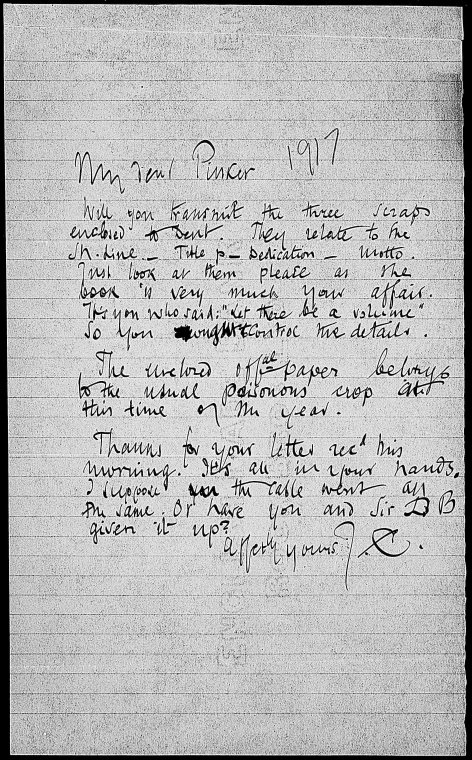 1917
My dear Pinker
Will you transmit the three scraps
enclosed to Dent. They relate to the
Sh. Line. – Title p – Dedication – Motto.
Just look at them please as the
book is very much your affair.
It's you who said: "Let there be a volume"
So you ought control the details.
The enclosed offal paper belongs
to the usual poisonous crop at
this time of the year.
Thanks for your letter recd this
morning. It's all in your hands.
I suppose the cable went all
the same. Or have you and Sir D B
given it up?
Affectly yours J. C.